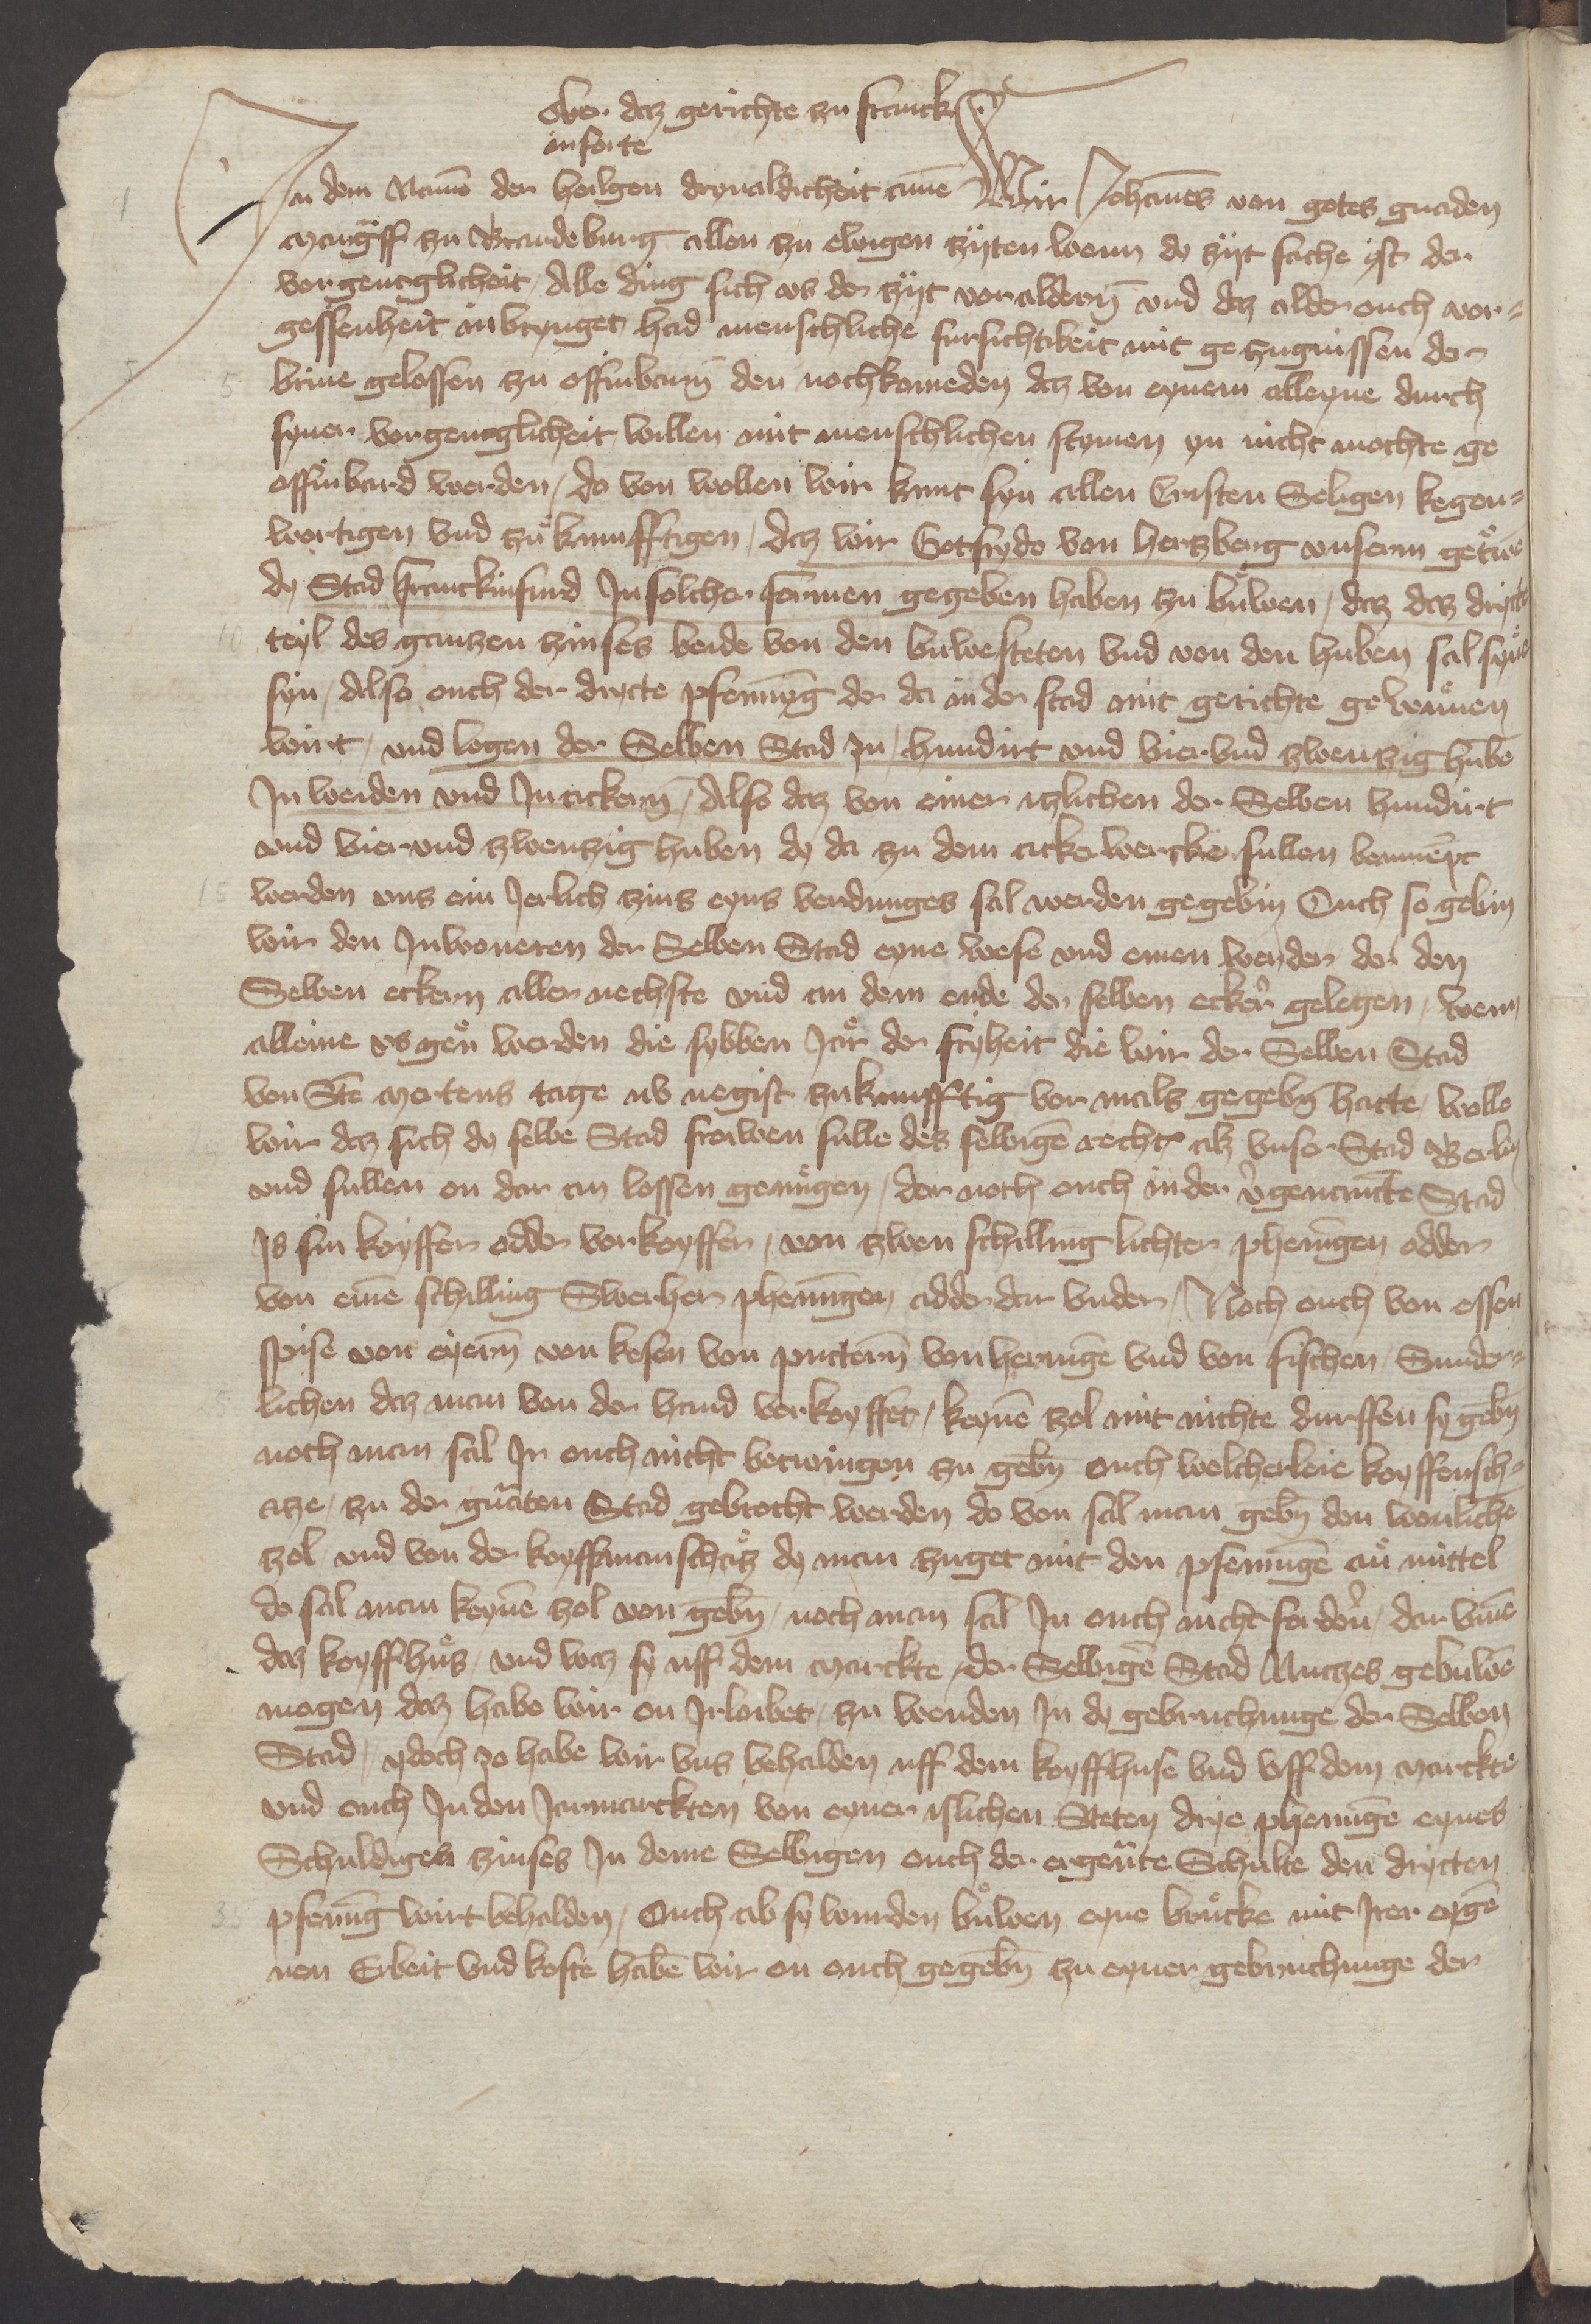 ober daz gerichte zu franck
inforte
In dem Namē der heilgen dryualdicheit amē Wir Johānes von gotes gnaden
Marigraff zu Brandeburg allen zu ewigen zyten wenn dy zyt sache yst der
vorgenglicheit / Alle ding sich vs der zyt voralderñ vnd daz alder ouch vor=
gessenheit inbrynget had menschliche fursichtikeit mit gezugnissen der
brine gelossen zu offinbarñ den nochkomeden daz von eynem alleyne durch
syner vorgenglicheit willen mit menschlichen stymen yn nicht mochte ge
offinbard werden / do von wollen wir kunt syn allen Cristen Seligen kegen=
wortigen vnd zůkumfftigen / daz wir Gotfrydo von hertzberg vnserm getůwē
dy Stad franckinfurd In solcher formen gegeben haben zu bůwen / daz daz drytte
teyl des gantzen zinses beide von den buwesteten vnd von den huben sal syne
syn / Also ouch der drytte pfennyg der da in der stad mit gerichte gewunnen
wirt / vnd logen der Selben Stad zu / hundirt vnd vier vnd zwenzig hubē
In weiden vnd In ackerñ / Also daz von einer itzlichen der Selben hundirt
vnd vier vnd zwenzig huben dy da zu dem ackerwercke sullen benumēpt
werden vns ein Jerlich zins eyns verdunges sal werden gegebin Ouch so gebin
wir den Inwoneren der Selben Stad eyne wese vnd einen werder der den
Selben eckern aller nechste vnd an dem ende der selben ecker gelegen / wenn
alleine vsgen werden die sybben Jar der fryheit die wir der Selben Stad
von Ste Mertens tage nv negist zukumfftig vor mals gegebñ hatte / Wolle
wir daz sich dy selbe Stad frowen sulle des selbigē recht alz vnser Stad Berlyn
vnd sullen on dar an lossen genůgen / der noch ouch in der vgenante Stad
Is sin koyffer odder vorkoyffer / von zwen schilling lichter phennigen odder
von einē schilling Swerher phennigen adder dar vnder / Noch ouch von essen
spise von eyerñ von kesen von putterñ von heringē vnd von fischen / Sunder=
lichen daz man von der hand vorkoyffet / keynē zol mit nichte durffen sy gebñ
noch man sal Jn ouch nicht betwingen zu gebñ ouch welcherleie koyffensch=
atze / zu der gnāten Stad gebrocht werden do von sal man gebñ den wonliche
zol vnd von der koyffmanschatz dy man zuget mit den pfennigē an mittel
do sal man keynē zol von gebñ / noch man sal Jn ouch nicht fordern / dar vmē
daz koyffhůs / vnd waz sy uff dem Marckte / der Selbigē Stad Nutzes gebuwē
mogen daz habe wir on Irloibet / zu wenden In dy gebruchunge der Selben
Stad / ydoch zo habe wir vns behalden uff dem koyffhuse vnd vff dem Marckte
vnd ouch In den Jarmarckten von eyner islichen Steten drye phennigē eynes
Schuldigen zinses In deme Selbigen ouch der ergente Schulte den drytten
pfennig wirt behalden / Ouch ab sy wurden bůwen eyne brucke mit Irer eygē
nen Erbeit vnd koste habē wir on ouch gegebñ zu eyner gebruchunge der